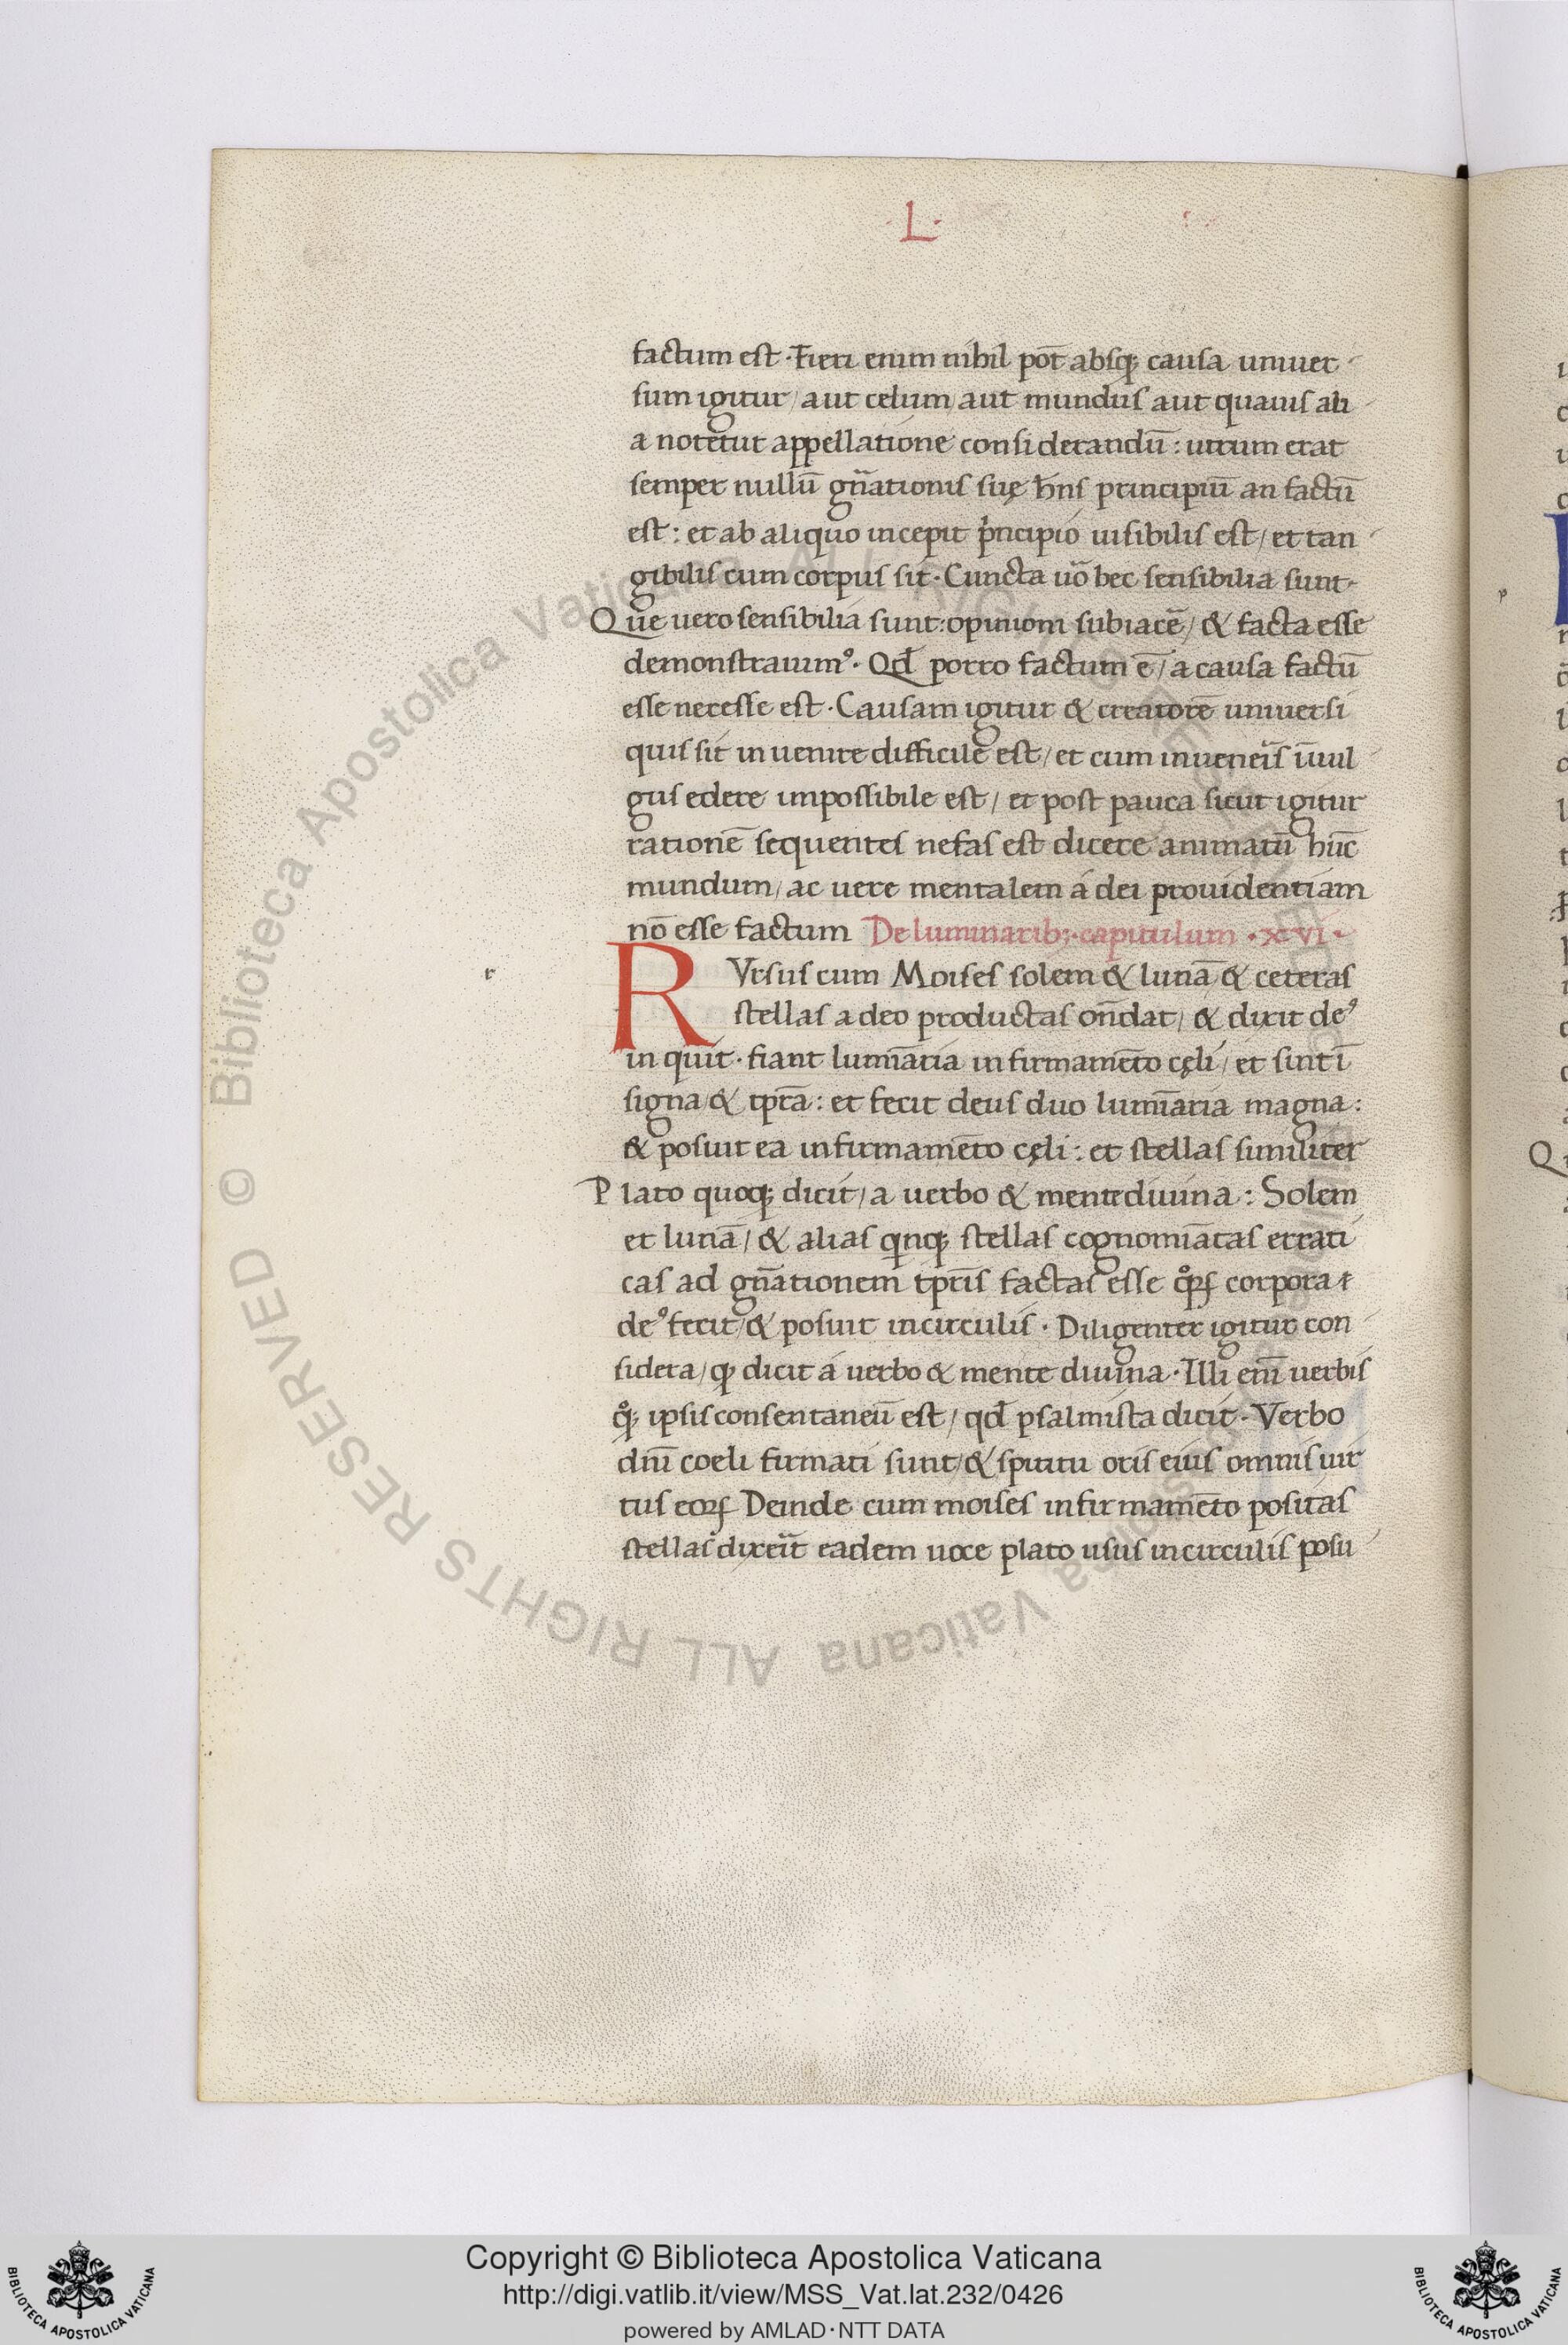 ·L·
factum est · Fieri enim nihil pot̄ absq; causa uniuer-
sum igitur / aut celum / aut mundus aut quauis ali-
a notetur appellatione considerandū : utrum erat
semper nullū gn̄ationis suę hn̄s principiū an factū
est : et ab aliquo incepit pͥncipio uisibilis est / et tan-
gibilis cum corpus sit · Cuncta uō hec sensibilia sunt ·
Que uero sensibilia sunt : opinioni subiacē / & facta esse
demonstrauimꝰ · Qd̄ porro factum ē / a causa factū
esse necesse est · Causam igitur & creatorē uniuersi
quis sit inuenire difficile est / et cum inueneīs ī uul-
gus edere impossibile est / et post pauca sicut igitur
rationē sequentes nefas est dicere animatū hūc
mundum / ac uere mentalem a dei prouidentiam
nō esse factum De luminarib; · capitulum · xvi ·
r
RVrsus cum Moises solem & lunā & ceteras
stellas a deo productas on̄dat / & dixit deꝰ
inquit · fiant lumīaria in firmamēto cęli / et sint ī
signa & tpr̄a : et fecit deus duo lumīaria magna :
& posuit ea in firmamēto cęli : et stellas similiter
Plato quoq; dicit / a uerbo & mente diuina : Solem
et lunā / & alias qͥnq; stellas cognomīatas errati
cas ad gn̄ationem tpr̄is factas esse qͦꝝ corpora
deꝰ fecit / & posuit in circulis · Diligenter igitur con-
sidera / ꝙ dicit a uerbo & mente diuina · Illi em̄ uerbis
qͦq; ipsis consentaneū est / qd̄ psalmista dicit · Verbo
dnī coeli firmati sunt / & spiritu oris eius omnis uir
tus eoꝝ Deinde cum moises in firmamēto positas
stellas dixeīt eadem uoce plato usus in circulis posu-
Q
Copyright © Biblioteca Apostolica Vaticana
http://digi.vatlib.it/view/MSS_Vat.lat.232/0426
powered by AMLAD·NTT DATA
BIBLIOTECA APOSTOLICA VATICANA
BIBLIOTECA APOSTOLICA VATICANA
© Biblioteca Apostolica Vaticana ALL RIGHTS RESERVED
© Biblioteca Apostolica Vaticana ALL RIGHTS RESERVED